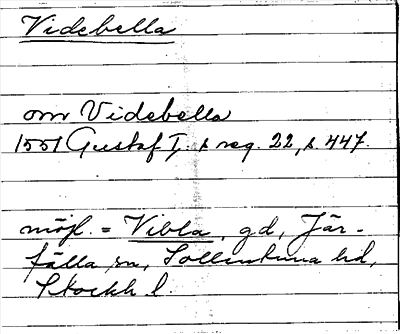 Videbella
om Videbella
1551 Gustaf I:s reg. 22, s. 447.
möjl. = Vibla, gd, Jär-
fälla sn, Sollentuna hd,
Stockh l.